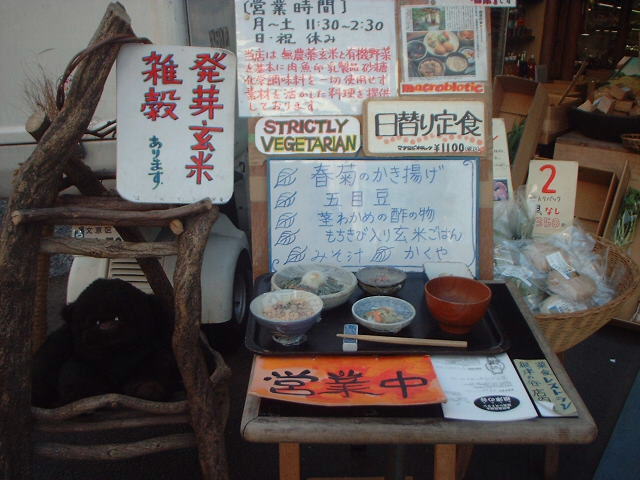 [営業時間]
月〜土 11:30-2:30
日・祝 休み
当店は無農薬玄米と有機野菜
を基本に肉魚卵乳製品砂糖
化学調味料を一切使用せず
素材を活かした料理を提供
しております
macrobiotic
発芽玄米
雑穀
あります
STRICTLY
VEGETARIAN
日替り定食
¥1100
春菊のかき揚げ
五目豆
茎わかめの酢の物
もちきび入り玄米ごはん
みそ汁 かくや
2
営業中
文京区